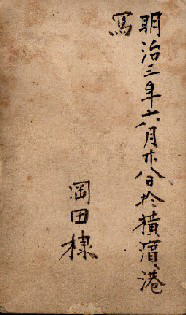 明治三年六月廿八日於横濱港
寫
岡田棣